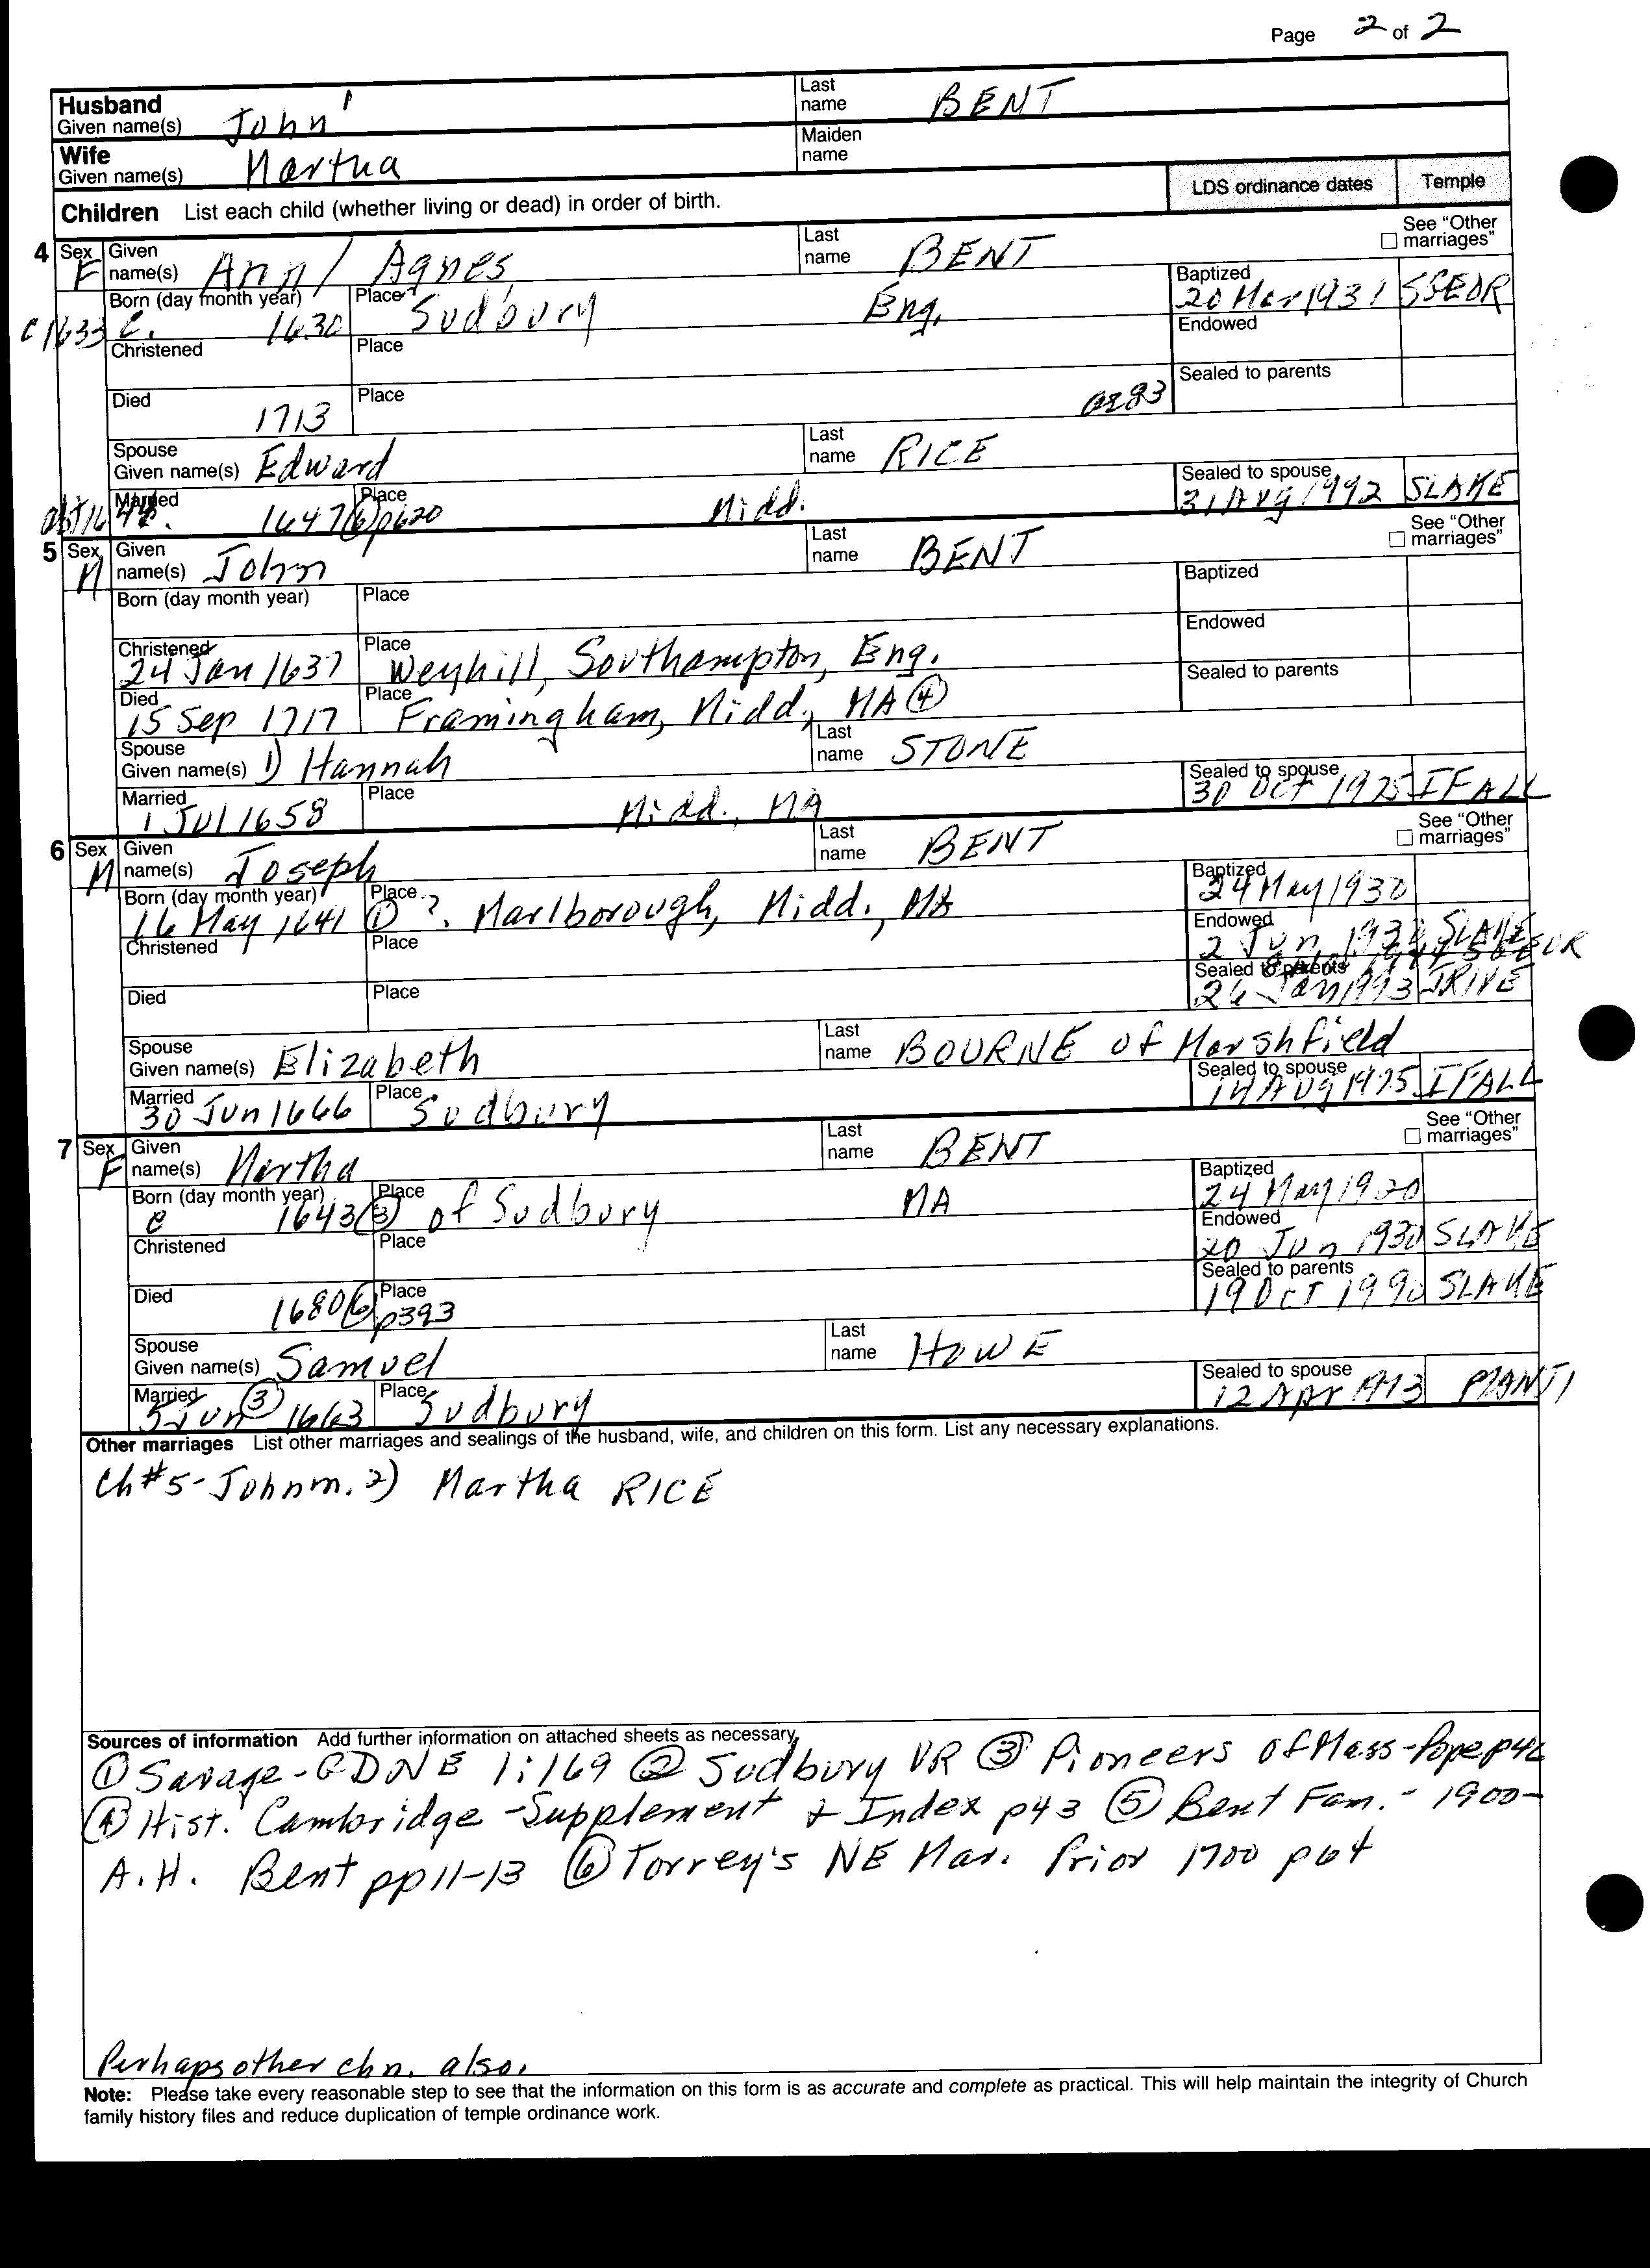 Page 2 of 2
Husband Given name(s) John Last name BENT
Wife Given name(s) Martha Maiden name
Children List each child (whether living or dead) in order of birth. LDS ordinance dates Temple
4 Sex F Given name(s) Ann / Agnes Last name BENT See "Other marriages"
c 1633 Born (day month year) c. 1630 Place Sudbury Eng. Baptized 20 Mar 1931 SGEOR
Endowed
Christened Place
Sealed to parents
Died 1713 Place ae 83
Spouse Given name(s) Edward Last name RICE
Married 1647 (6) p620 Place Midd. Sealed to spouse 31 Aug 1992 SLAKE
5 Sex M Given name(s) John Last name BENT See "Other marriages"
Born (day month year) Place Baptized
Endowed
Christened 24 Jan 1637 Place Weyhill, Southampton, Eng.
Sealed to parents
Died 15 Sep 1717 Place Framingham, Midd., MA (4)
Spouse Given name(s) 1) Hannah Last name STONE
Married 1 Jul 1658 Place Midd., MA Sealed to spouse 30 Oct 1975 IFALL
6 Sex M Given name(s) Joseph Last name BENT See "Other marriages"
Born (day month year) 16 May 1641 (1) Place ? Marlborough, Midd., MA Baptized 24 May 1930
Christened Place Endowed 2 Jun SLAKE
Died Place Sealed to parents 26 Jan 1993 JRIVE
Spouse Given name(s) Elizabeth Last name BOURNE of Marshfield
Married 30 Jun 1666 Place Sudbury Sealed to spouse 14 Aug 1975 IFALL
7 Sex F Given name(s) Martha Last name BENT See "Other marriages"
Born (day month year) c 1643 (3) Place of Sudbury MA Baptized 24 May 1930
Christened Place Endowed 20 Jun 1930 SLAKE
Died 1680 (6) p393 Place Sealed to parents 19 Oct 1990 SLAKE
Spouse Given name(s) Samuel Last name HOWE
Married 5 Jun (3) 1663 Place Sudbury Sealed to spouse 12 Apr 1913
Other marriages List other marriages and sealings of the husband, wife, and children on this form. List any necessary explanations.
Ch #5 - John m. 2) Martha RICE
Sources of information Add further information on attached sheets as necessary.
(1) Savage - GDNE 1:169 (2) Sudbury VR (3) Pioneers of Mass - Pope p46
(4) Hist. Cambridge - Supplement & Index p43 (5) Bent Fam. - 1900 -
A.H. Bent pp 11-13 (6) Torrey's NE Mar. Prior 1700 p64
Perhaps other chn. also.
Note: Please take every reasonable step to see that the information on this form is as accurate and complete as practical. This will help maintain the integrity of Church
family history files and reduce duplication of temple ordinance work.